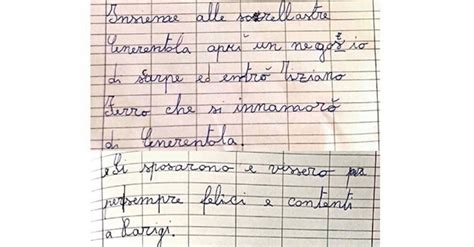 Insieme alle sorellastre
Cenerentola aprì un negozio
di scarpe ed entrò Tiziano
Ferro che si innamorò
di Cenerentola.
Si sposarono e vissero
per sempre felici e contenti
a Parigi.